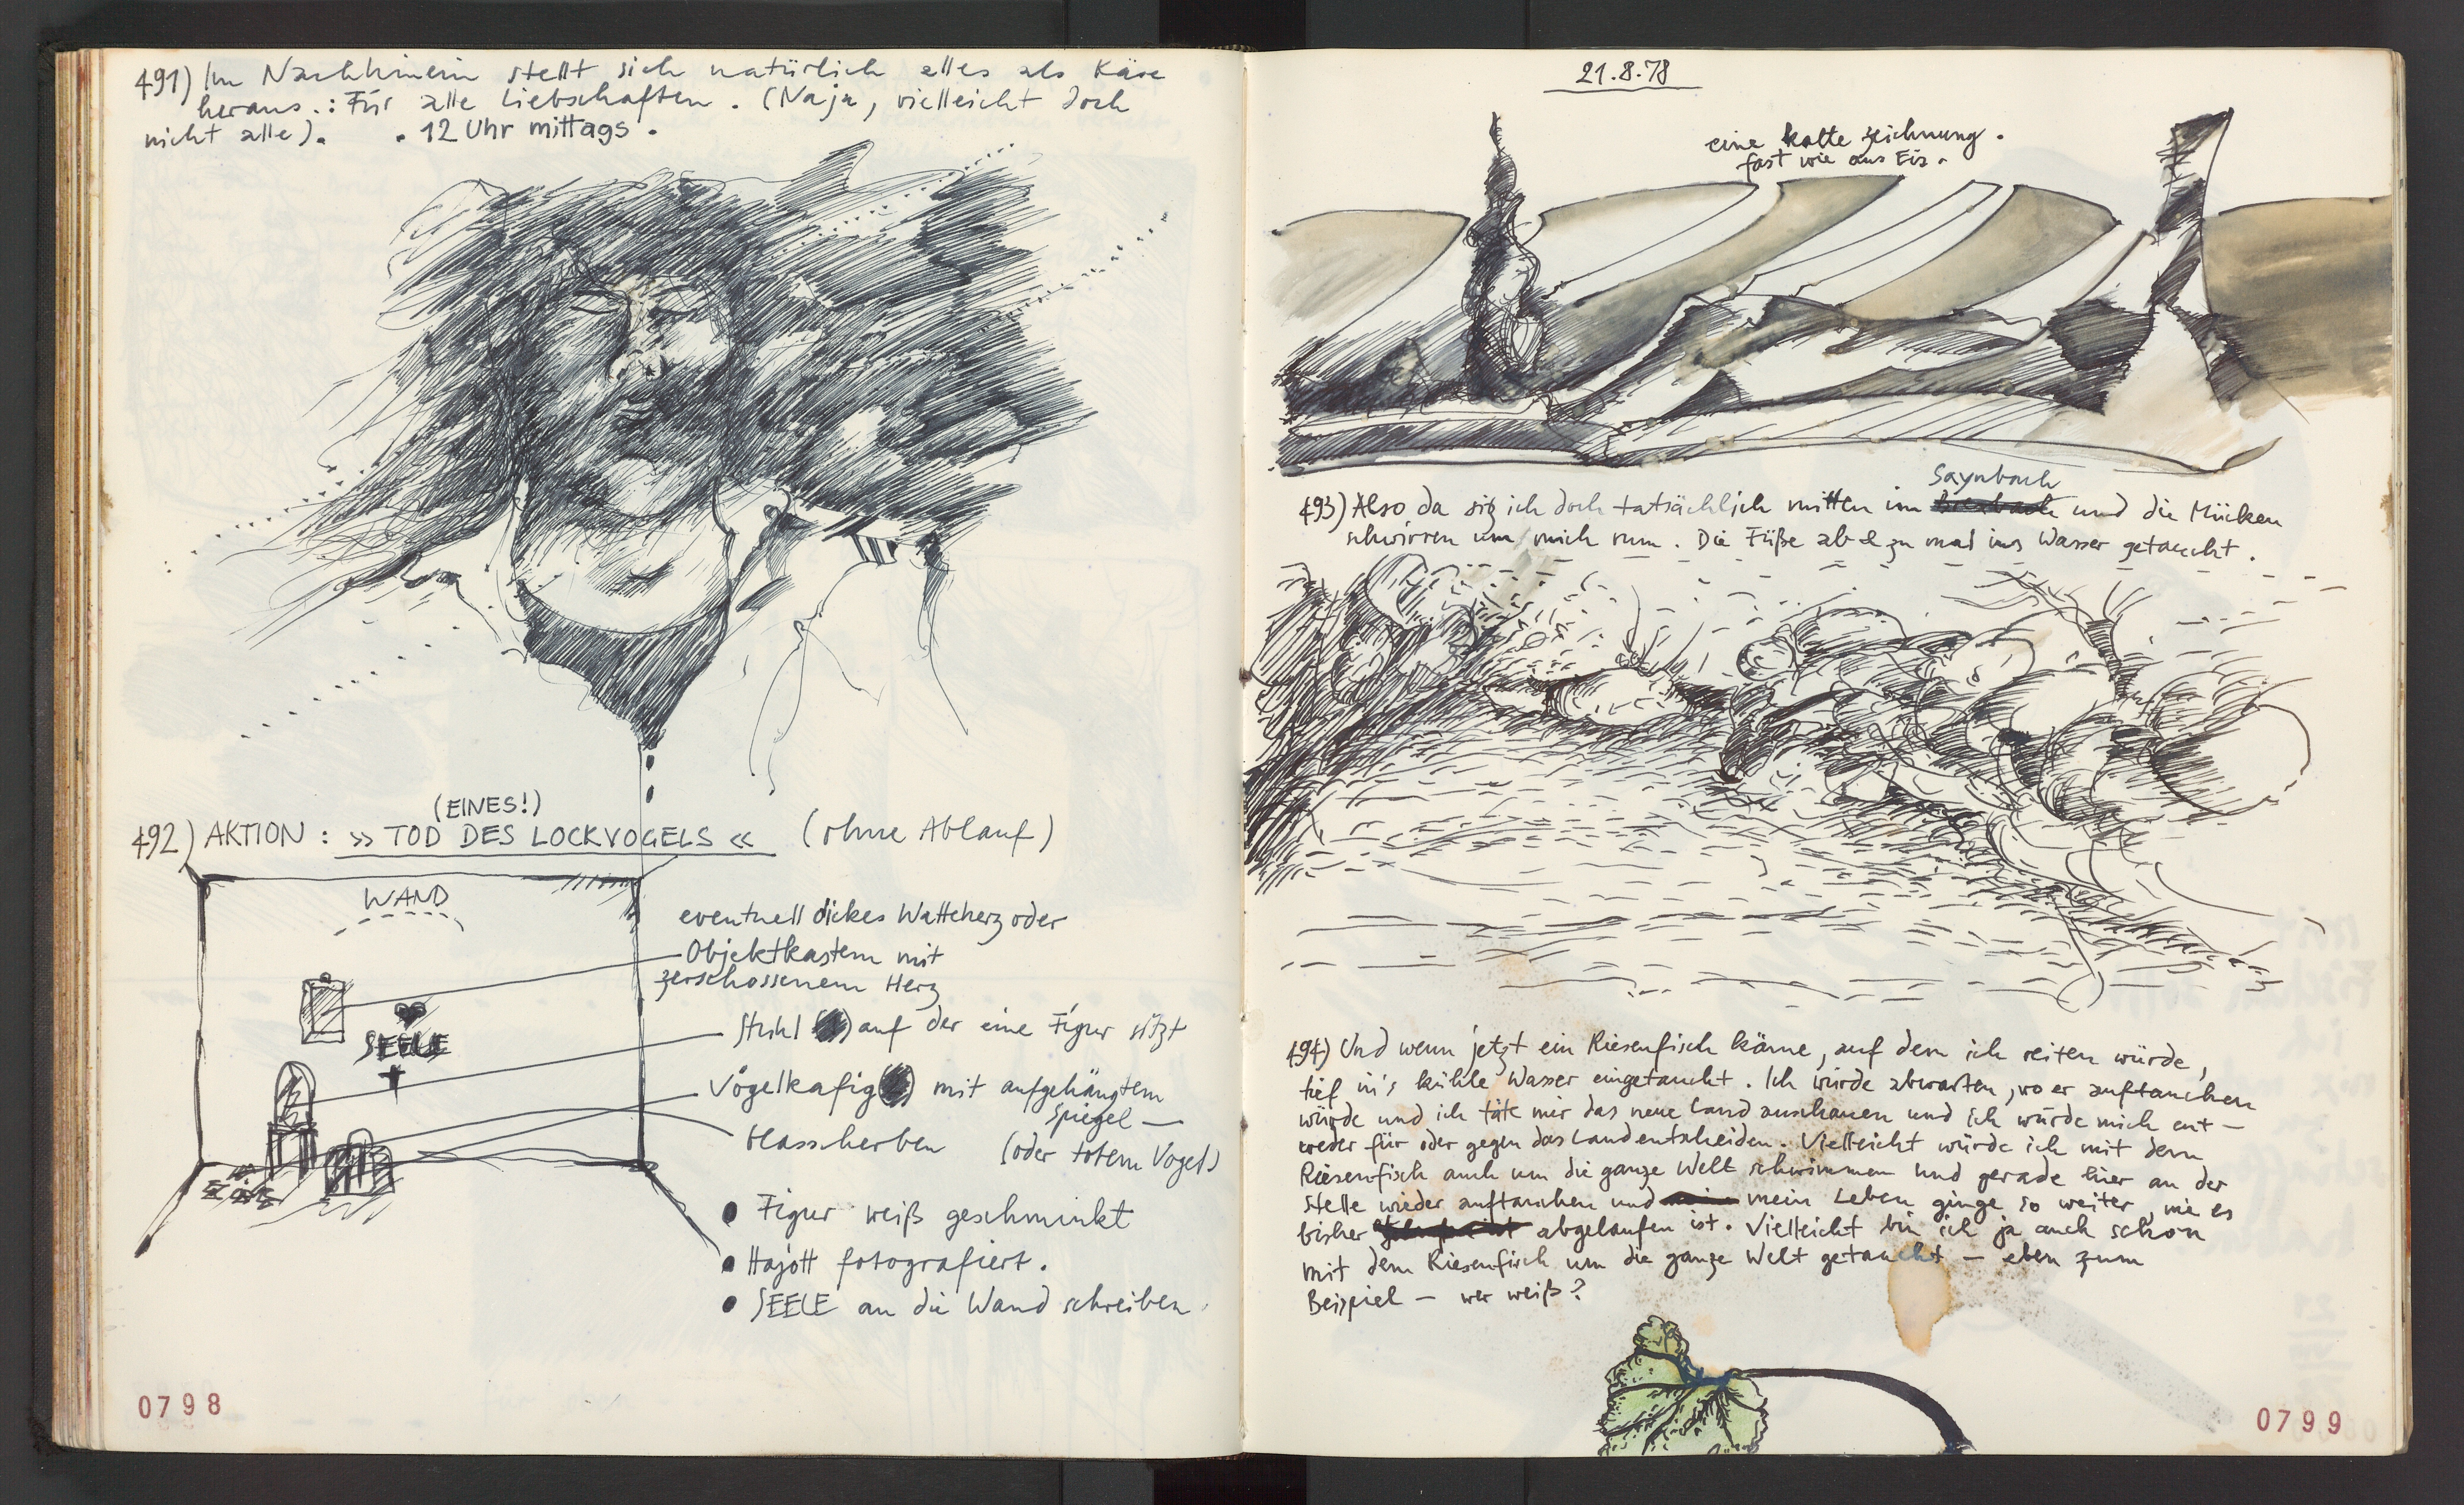 491) Im Nachhinein stellt sich natürlich alles als Käse
heraus.: Für alle Liebschaften. (Naja, vielleicht doch
nicht alle). . 12 Uhr mittags .
(EINES!)
492) AKTION : » TOD DES LOCKVOGELS « (ohne Ablauf)
WAND
eventuell dickes Watteherz oder
Objektkasten mit
zerschossenem Herz
SEELE
Stuhl auf der eine Figur sitzt
Vogelkäfig mit aufgehängtem
Spiegel —
Glasscherben (oder totem Vogel)
• Figur weiß geschminkt
• Hajott fotografiert.
• SEELE an die Wand schreiben.
0798
21.8.78
eine kalte Zeichnung.
fast wie aus Eis.
Saynbach
493) Also da sitz ich doch tatsächlich mitten im und die Mücken
schwirren um mich rum. Die Füße ab & zu mal ins Wasser getaucht.
494) Und wenn jetzt ein Riesenfisch käme, auf dem ich reiten würde,
tief in's kühle Wasser eingetaucht. Ich würde abwarten, wo er auftauchen
würde und ich täte mir das neue Land anschauen und ich würde mich ent-
weder für oder gegen das Land entscheiden. Vielleicht würde ich mit dem
Riesenfisch auch um die ganze Welt schwimmen und gerade hier an der
Stelle wieder auftauchen und mein Leben ginge so weiter, wie es
bisher abgelaufen ist. Vielleicht bin ich ja auch schon
mit dem Riesenfisch um die ganze Welt getaucht — eben zum
Beispiel — wer weiß?
0799